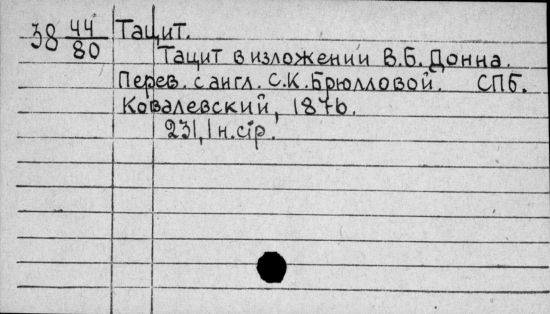 38 44/80 Тацит.
Тацит в изложении В.Б. Донна.
Перев. с англ. С.К. Брюлловой. СПб.
Ковалевский, 1876.
231, 1 н. стр.